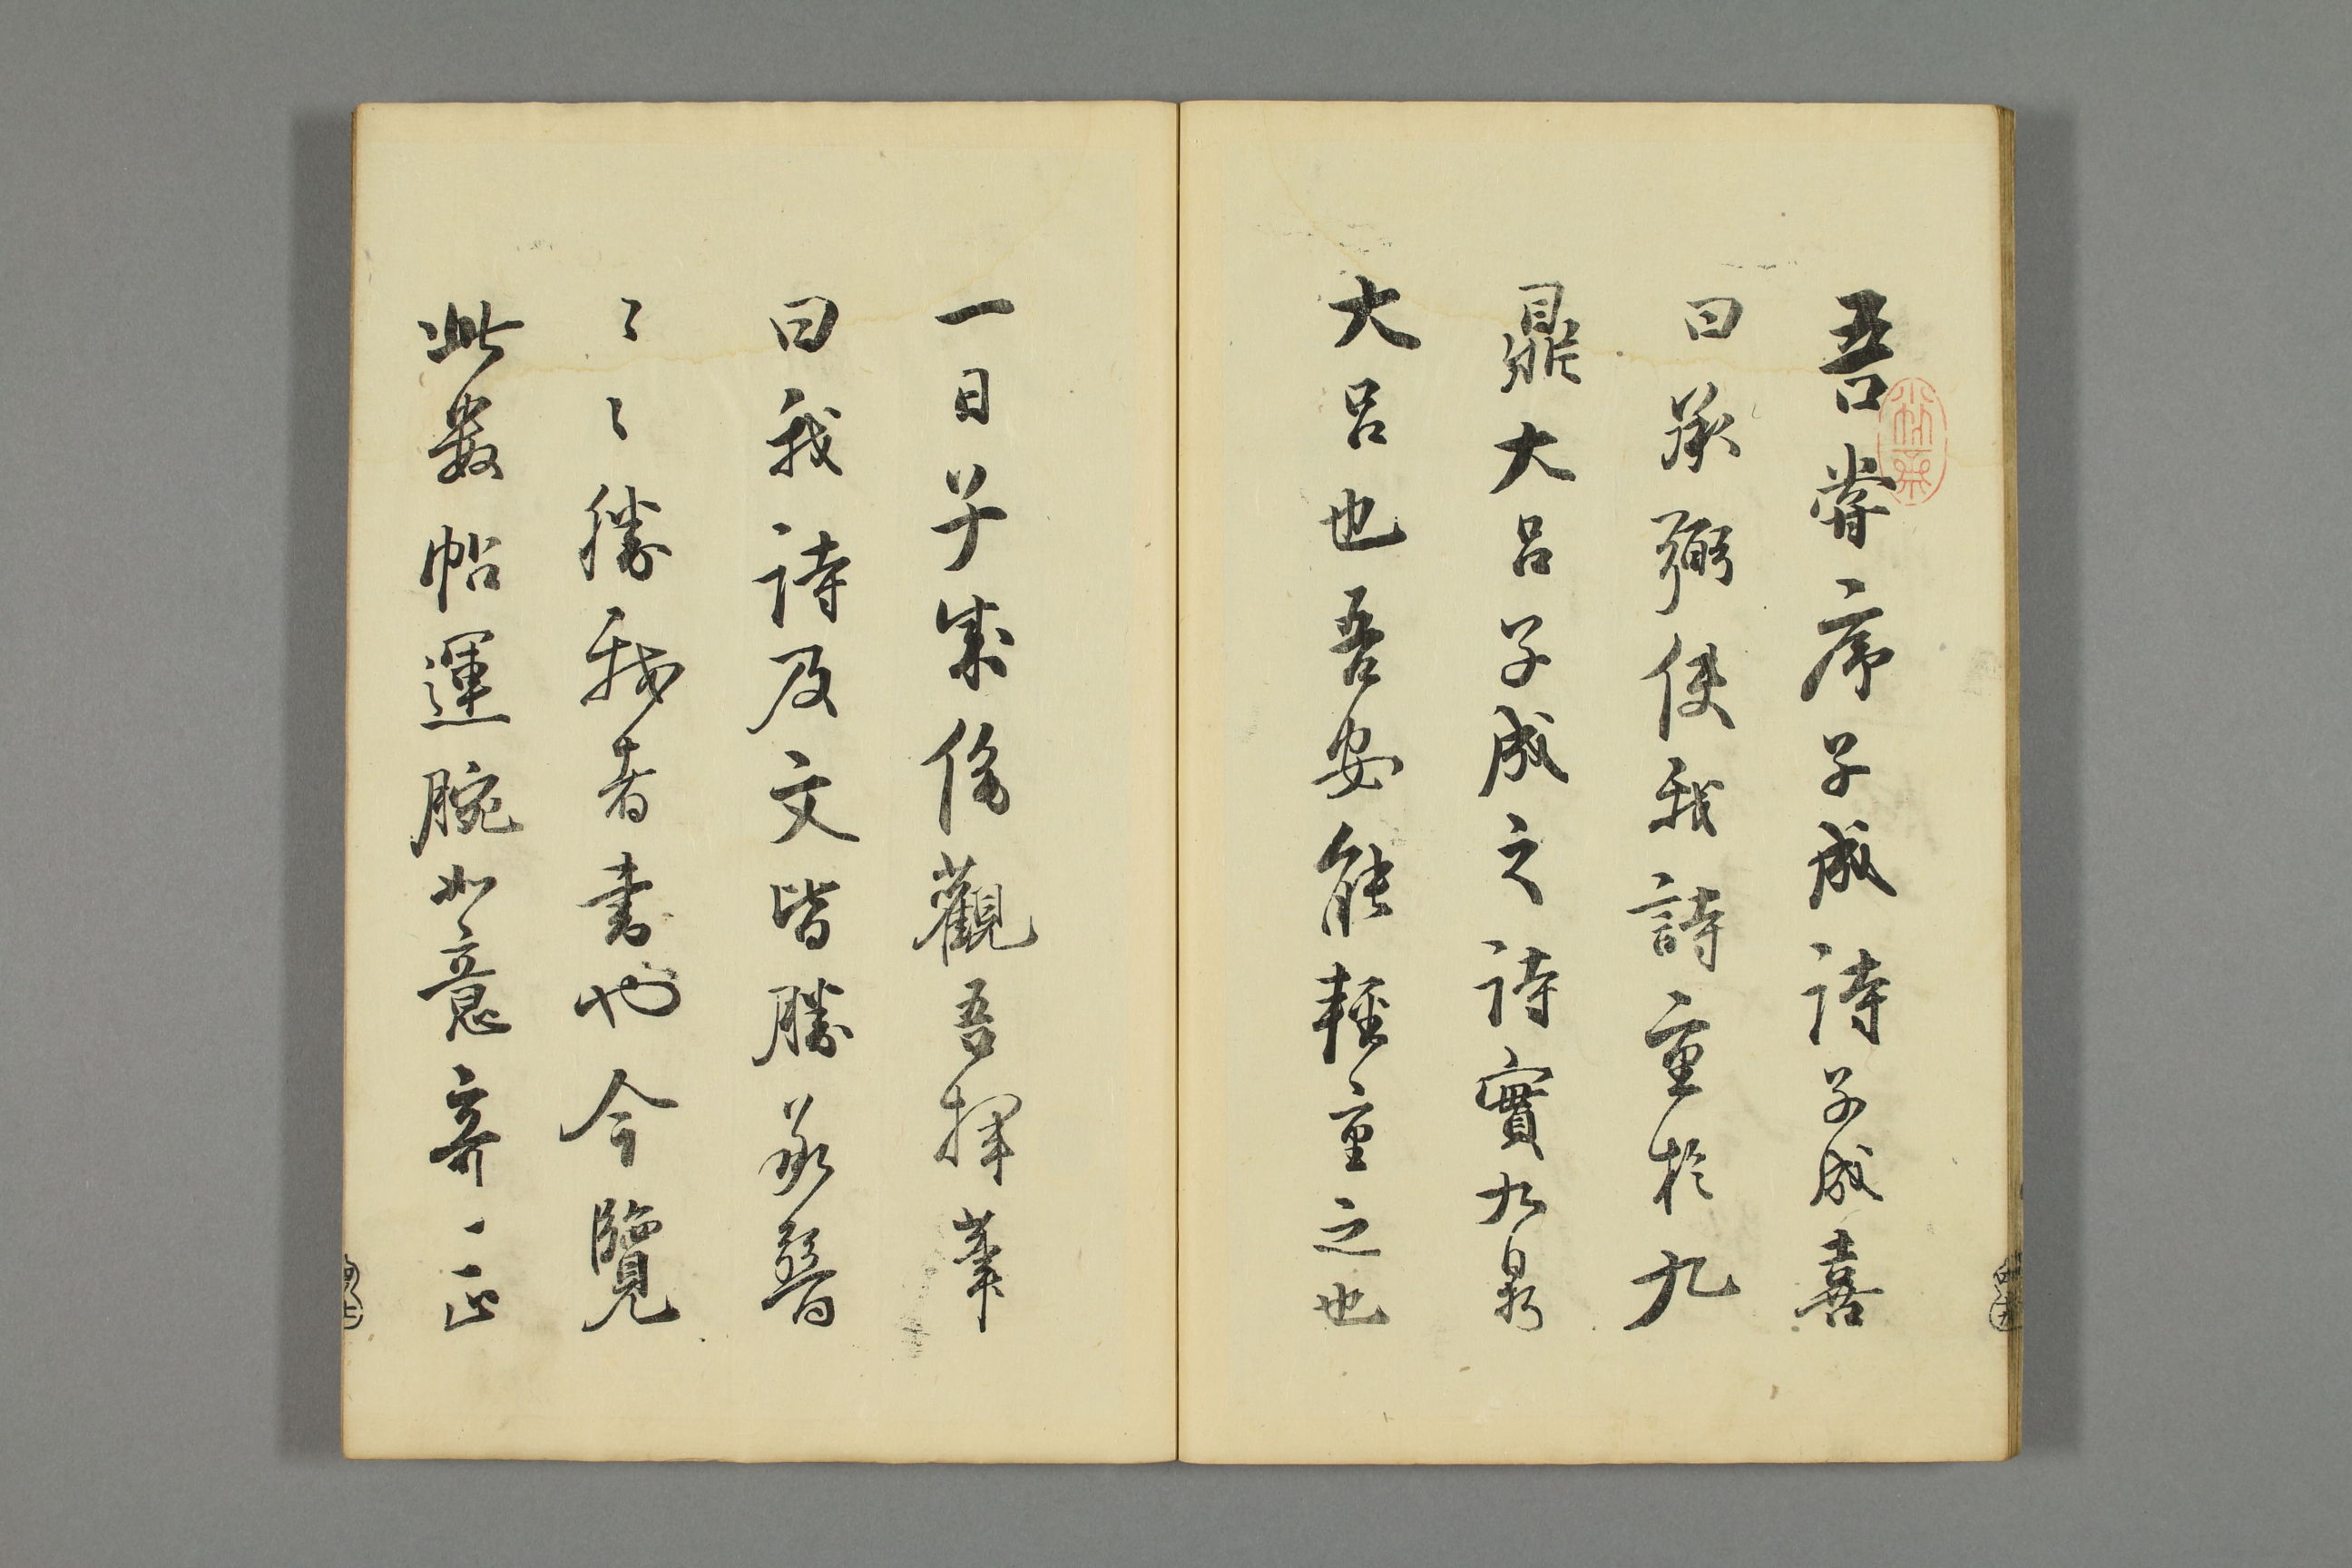 吾嘗序子成詩子成喜
曰承弼使我詩重於九
鼎大呂子成之詩實九鼎
大呂也吾安能輕重之也
一日子成傍觀吾揮筆
曰我詩及文皆勝承弼
〻〻勝我者書也今覽
此數帖運腕如意奇〻正
小竹齋